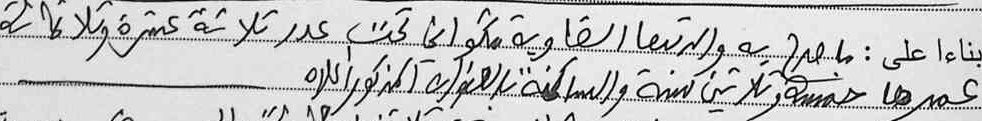 بناءا على : ما صرح به والدتها الضاوية مكوار تحت عدد ثلاثة عشرة وثلاثمائة
عمرها خمسة وثلاثين سنة والساكنة بالعنوان المذكور أعلاه